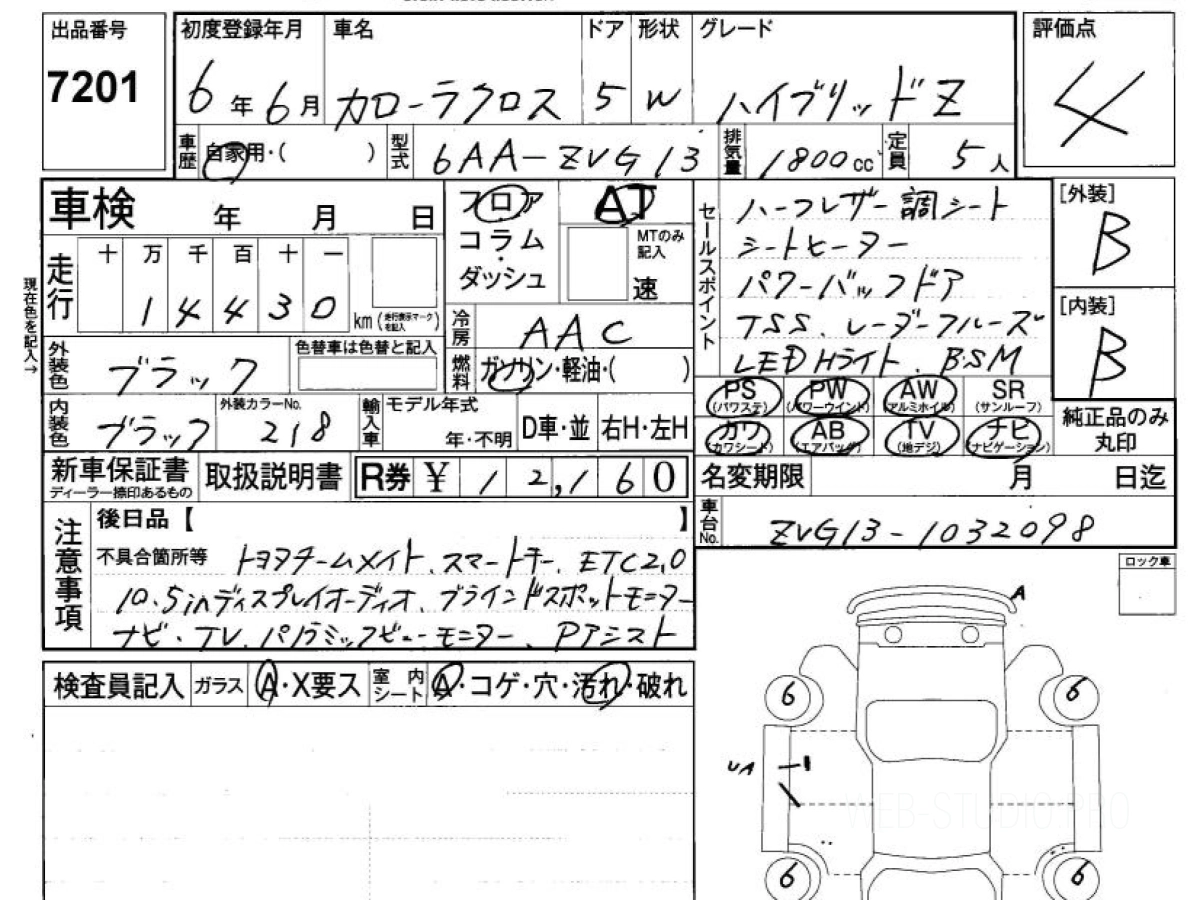 出品番号
7201
初度登録年月
6年6月
車名
カローラクロス
ドア
5
形状
W
グレード
ハイブリッドZ
評価点
4
車歴
自家用・( )
型式
6AA-ZVG13
排気量
1800cc
定員
5人
車検
年 月 日
フロア
コラム
・
ダッシュ
AT
MTのみ
記入
速
セールスポイント
ハーフレザー調シート
シートヒーター
パワーバックドア
TSS、レーダークルーズ
LED Hライト、BSM
[外装]
B
[内装]
B
現在色を記入→
走行
十 万 千 百 十 一
1 4 4 3 0
km(走行表示マークを記入)
冷房
AAC
燃料
ガソリン・軽油・( )
外装色
ブラック
色替車は色替と記入
PS
(パワステ)
PW
(パワーウインド)
AW
(アルミホイル)
SR
(サンルーフ)
カワ
(カワシート)
AB
(エアバッグ)
TV
(地デジ)
ナビ
(ナビゲーション)
純正品のみ
丸印
内装色
ブラック
外装カラーNo.
218
輸入車
モデル年式
年・不明
D車・並
右H・左H
新車保証書
ディーラー捺印あるもの
取扱説明書
R券
¥12,160
名変期限
月 日迄
車台No.
ZVG13-1032098
注意事項
後日品【 】
不具合箇所等 トヨタチームメイト、スマートキー、ETC2.0
10.5inディスプレイオーディオ、ブラインドスポットモニター
ナビ・TV、パノラミックビューモニター、Pアシスト
ロック車
検査員記入
ガラス
A・X要ス
室内シート
A・コゲ・穴・汚れ・破れ
A
6
6
UA
6
6
WEB-STUDIO.PRO